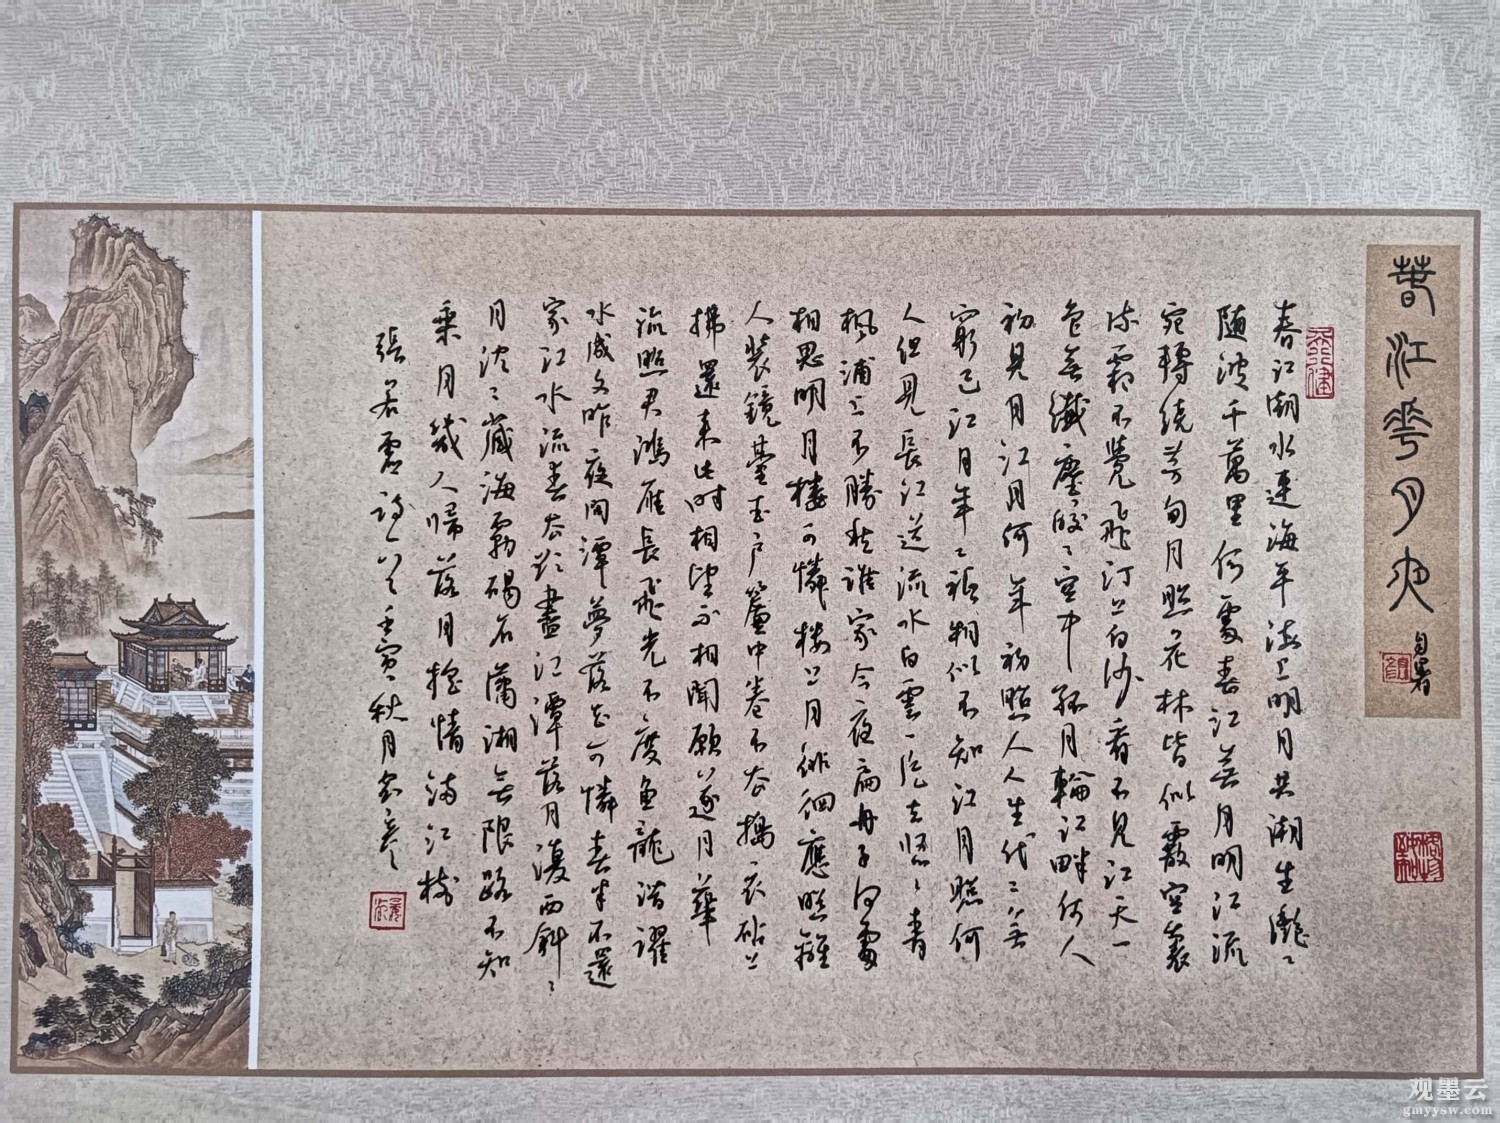 春江花月夜
自署
春江潮水連海平海上明月共潮生灔〻
随波千萬里何處春江無月明江流
宛轉繞芳甸月照花林皆似霰空裏
流霜不覺飛汀上白沙看不見江天一
色無纖塵皎〻空中孤月輪江畔何人
初見月江月何年初照人人生代〻無
窮已江月年〻祗相似不知江月照何
人但見長江送流水白雲一片去悠〻青
楓浦上不勝愁誰家今夜扁舟子何處
相思明月樓可憐樓上月徘徊應照離
人裝鏡臺玉户簾中卷不去擣衣砧上
拂還来此時相望不相聞願逐月華
流照君鴻雁長飛光不度魚龍潜躍
水成文昨夜閑潭夢落花可憐春半不還
家江水流春去欲盡江潭落月復西斜〻
月沈〻藏海霧碣石瀟湘無限路不知
乘月幾人歸落月摇情滿江樹
張若虚詩一首壬寅秋月
观墨云
gmyysw.com